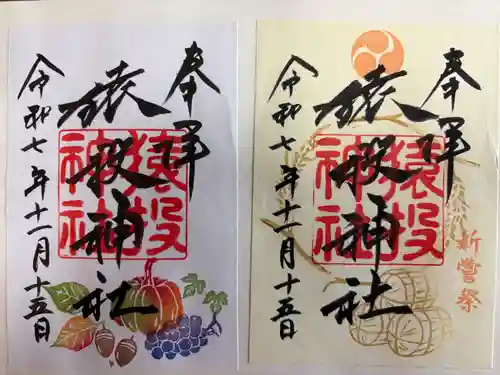 奉拝
猿投神社
猿投神社
令和七年十一月十五日
奉拝
猿投神社
猿投神社
新嘗祭
令和七年十一月十五日